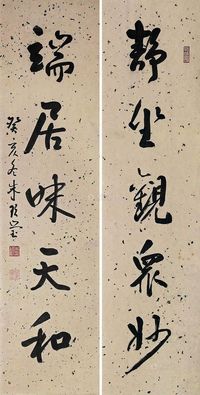 靜坐觀眾妙
端居味天和
癸亥冬朱玖瑩